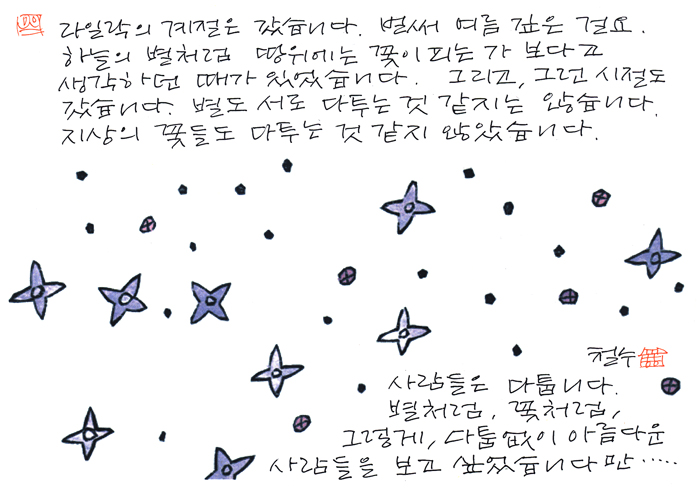 라일락의 계절은 갔습니다. 벌써 여름 깊은 걸요.
하늘의 별처럼 땅위에는 꽃이 피는가 보다고
생각하던 때가 있었습니다. 그리고, 그런 시절도
갔습니다. 별도 서로 다투는 것 같지는 않습니다.
지상의 꽃들도 다투는 것 같지 않았습니다.
철수
사람들은 다툽니다.
별처럼, 꽃처럼,
그렇게, 다툼없이 아름다운
사람들을 보고 싶었습니다만‥‥‥